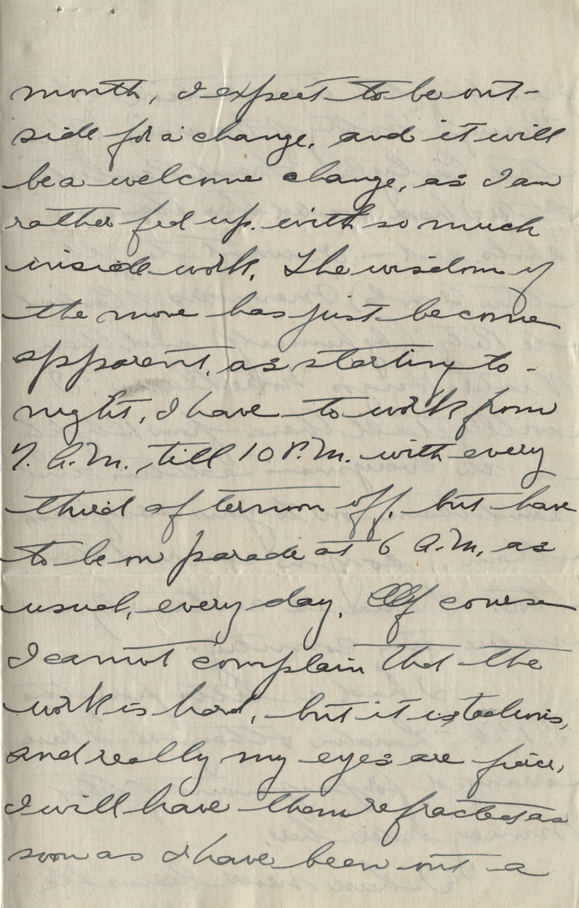 month, I expect to be out-
side for a change, and it will
be a welcome change, as I am
rather fed up with so much
inside work. The wisdom of
the move has just become
apparent, as starting to-
night, I have to work from
7. A.M., till 10 P.M. with every
third afternoon off, but have
to be on parade at 6 A.M, as
usual, every day. Of course
I cannot complain that the
work is hard, but it is tedious,
and really my eyes are
I will have them refracted as
soon as I have been out a